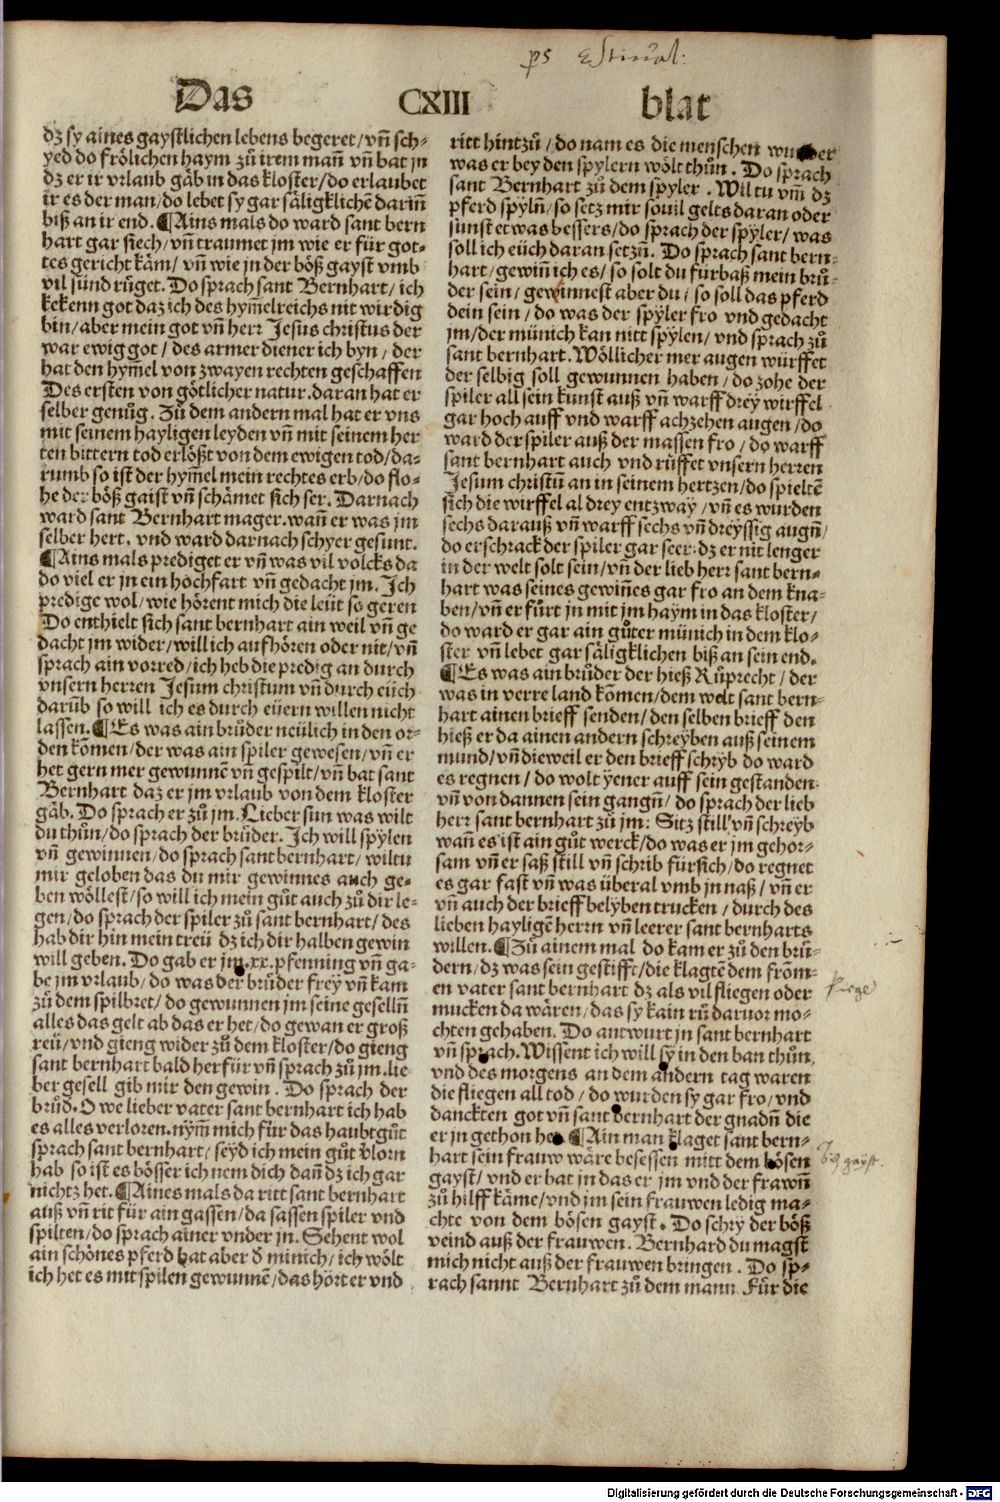 ps Estiual:
Das CXIII blat
dz sy aines gaystlichen lebens begeret / vñ sch-
yed do frölichen haym zů irem mañ vñ bat jn
dz er ir vrlaub gäb in das kloster / do erlaubet
ir es der man / do lebet sy gar säligklichē dariñ
biß an ir end. ¶Ains mals do ward sant bern
hart gar siech / vñ traumet jm wie er für got-
tes gericht käm / vñ wie jn der böß gayst vmb
vil sünd rüget. Do sprach sant Bernhart / ich
kekenn got daz ich des hym̃elreichs nit wirdig
bin / aber mein got vñ herr Jesus christus der
war ewig got / des armer diener ich byn / der
hat den hym̃el von zwayen rechten geschaffen
Des ersten von götlicher natur. daran hat er
selber genůg. Zů dem andern mal hat er vns
mit seinem hayligen leyden vñ mit seinem her
ten bittern tod erlößt von dem ewigen tod / da-
rumb so ist der hym̃el mein rechtes erb / do flo-
he der böß gaist vñ schämet sich ser. Darnach
ward sant Bernhart mager. wañ er was jm
selber hert. vnd ward darnach schyer gesunt.
¶Ains mals prediget er vñ was vil volcks da
do viel er jn ein hochfart vñ gedacht jm. Ich
predige wol / wie hörent mich die leüt so geren
Do enthielt sich sant bernhart ain weil vñ ge
dacht jm wider / will ich aufhören oder nit / vñ
sprach ain vorred / ich heb die predig an durch
vnsern herren Jesum christum vñ durch eüch
darūb so will ich es durch eüern willen nicht
lassen. ¶Es was ain brůder neülich in den or-
den kōmen / der was ain spiler gewesen / vñ er
het gern mer gewunnē vñ gespilt / vñ bat sant
Bernhart daz er jm vrlaub von dem kloster
gäb. Do sprach er zů jm. Lieber sun was wilt
du thůn / do sprach der brůder. Ich will spylen
vñ gewinnen / do sprach sant bernhart / wiltu
mir geloben das du mir gewinnes auch ge-
ben wöllest / so will ich mein gůt auch zů dir le-
gen / do sprach der spiler zů sant bernhart / des
hab dir hin mein treü dz ich dir halben gewin
will geben. Do gab er jm .xx. pfenning vñ ga-
be jm vrlaub / do was der brůder frey vñ kam
zů dem spilbret / do gewunnen jm seine geselln̄
alles das gelt ab das er het / do gewan er groß
reü / vnd gieng wider zů dem kloster / do gieng
sant bernhart bald herfür vñ sprach zů jm. lie-
ber gesell gib mir den gewin. Do sprach der
brůd. O we lieber vater sant bernhart ich hab
es alles verloren. nym̃ mich für das haubtgůt
sprach sant bernhart / seyd ich mein gůt v̄lorn
hab so ist es bösser ich nem dich dañ dz ich gar
nichtz het. ¶Aines mals da ritt sant bernhart
auß vñ rit für ain gassen / da sassen spiler vnd
spilten / do sprach ainer vnder jn. Sehent wol
ain schönes pferd hat aber d̄ minich / ich wölt
ich het es mit spilen gewunnē / das hört er vnd
ritt hintzů / do nam es die menschen wunder
was er bey den spylern wölt thůn. Do sprach
sant Bernhart zů dem spyler. Wil tu vm̃ dz
pferd spyln̄ / so setz mir souil gelts daran oder
sunst etwas bessers / do sprach der spyler / was
soll ich eüch daran setzn̄. Do sprach sant bern-
hart / gewiñ ich es / so solt du fürbaß mein brů-
der sein / gewinnest aber du / so soll das pferd
dein sein / do was der spyler fro vnd gedacht
jm / der münich kan nitt spylen / vnd sprach zů
sant bernhart. Wöllicher mer augen würffet
der selbig soll gewunnen haben / do zohe der
spiler all sein kunst auß vñ warff drey wirffel
gar hoch auff vnd warff achzehen augen / do
ward der spiler auß der massen fro / do warff
sant bernhart auch vnd rüffet vnsern herren
Jesum christū an in seinem hertzen / do spieltē
sich die wirffel al drey entzway / vñ es wurden
sechs darauß vñ warff sechs vñ dreyssig augn̄ /
do erschrack der spiler gar seer. dz er nit lenger
in der welt solt sein / vñ der lieb herr sant bern-
hart was seines gewiñes gar fro an dem kna-
ben / vñ er fůrt jn mit jm haym in das kloster /
do ward er gar ain gůter münich in dem klo-
ster vñ lebet gar säligklichen biß an sein end.
¶Es was ain brůder der hieß Růprecht / der
was in verre land kōmen / dem wolt sant bern-
hart ainen brieff senden / den selben brieff den
hieß er da ainen andern schreyben auß seinem
mund / vñ dieweil er den brieff schryb do ward
es regnen / do wolt yener auff sein gestanden.
vñ von dannen sein gangn̄ / do sprach der lieb
herr sant bernhart zů jm: Sitz still vñ schreyb
wañ es ist ain gůt werck / do was er jm gehor-
sam vñ er saß still vñ schrib fürsich / do regnet
es gar fast vñ was überal vmb jn naß / vñ er
vñ auch der brieff belyben trucken / durch des
lieben hayligē herrn vñ leerer sant bernharts
willen. ¶Zů ainem mal do kam er zů den brů-
dern / dz was sein gestifft / die klagtē dem from-
en vater sant bernhart dz als vil fliegen oder
mucken da wären / das sy kain rů daruor mo-
chten gehaben. Do antwurt jn sant bernhart
vñ sprach. Wissent ich will sy in den ban thůn,
vnd des morgens an dem andern tag waren
die fliegen all tod / do wurden sy gar fro / vnd
danckten got vñ sant bernhart der gnadn̄ die
er jn gethon het. ¶Ain man klaget sant bern-
hart sein frauw wäre besessen mitt dem bösen
gayst / vnd er bat jn das er jm vnd der frawñ
zů hilff käme / vnd jm sein frauwen ledig ma-
chte von dem bösen gayst. Do schry der böß
veind auß der frauwen. Bernhard du magst
mich nicht auß der frauwen bringen. Do sp-
rach sannt Bernhart zů dem mann Für die
Digitalisierung gefördert durch die Deutsche Forschungsgemeinschaft - DFG